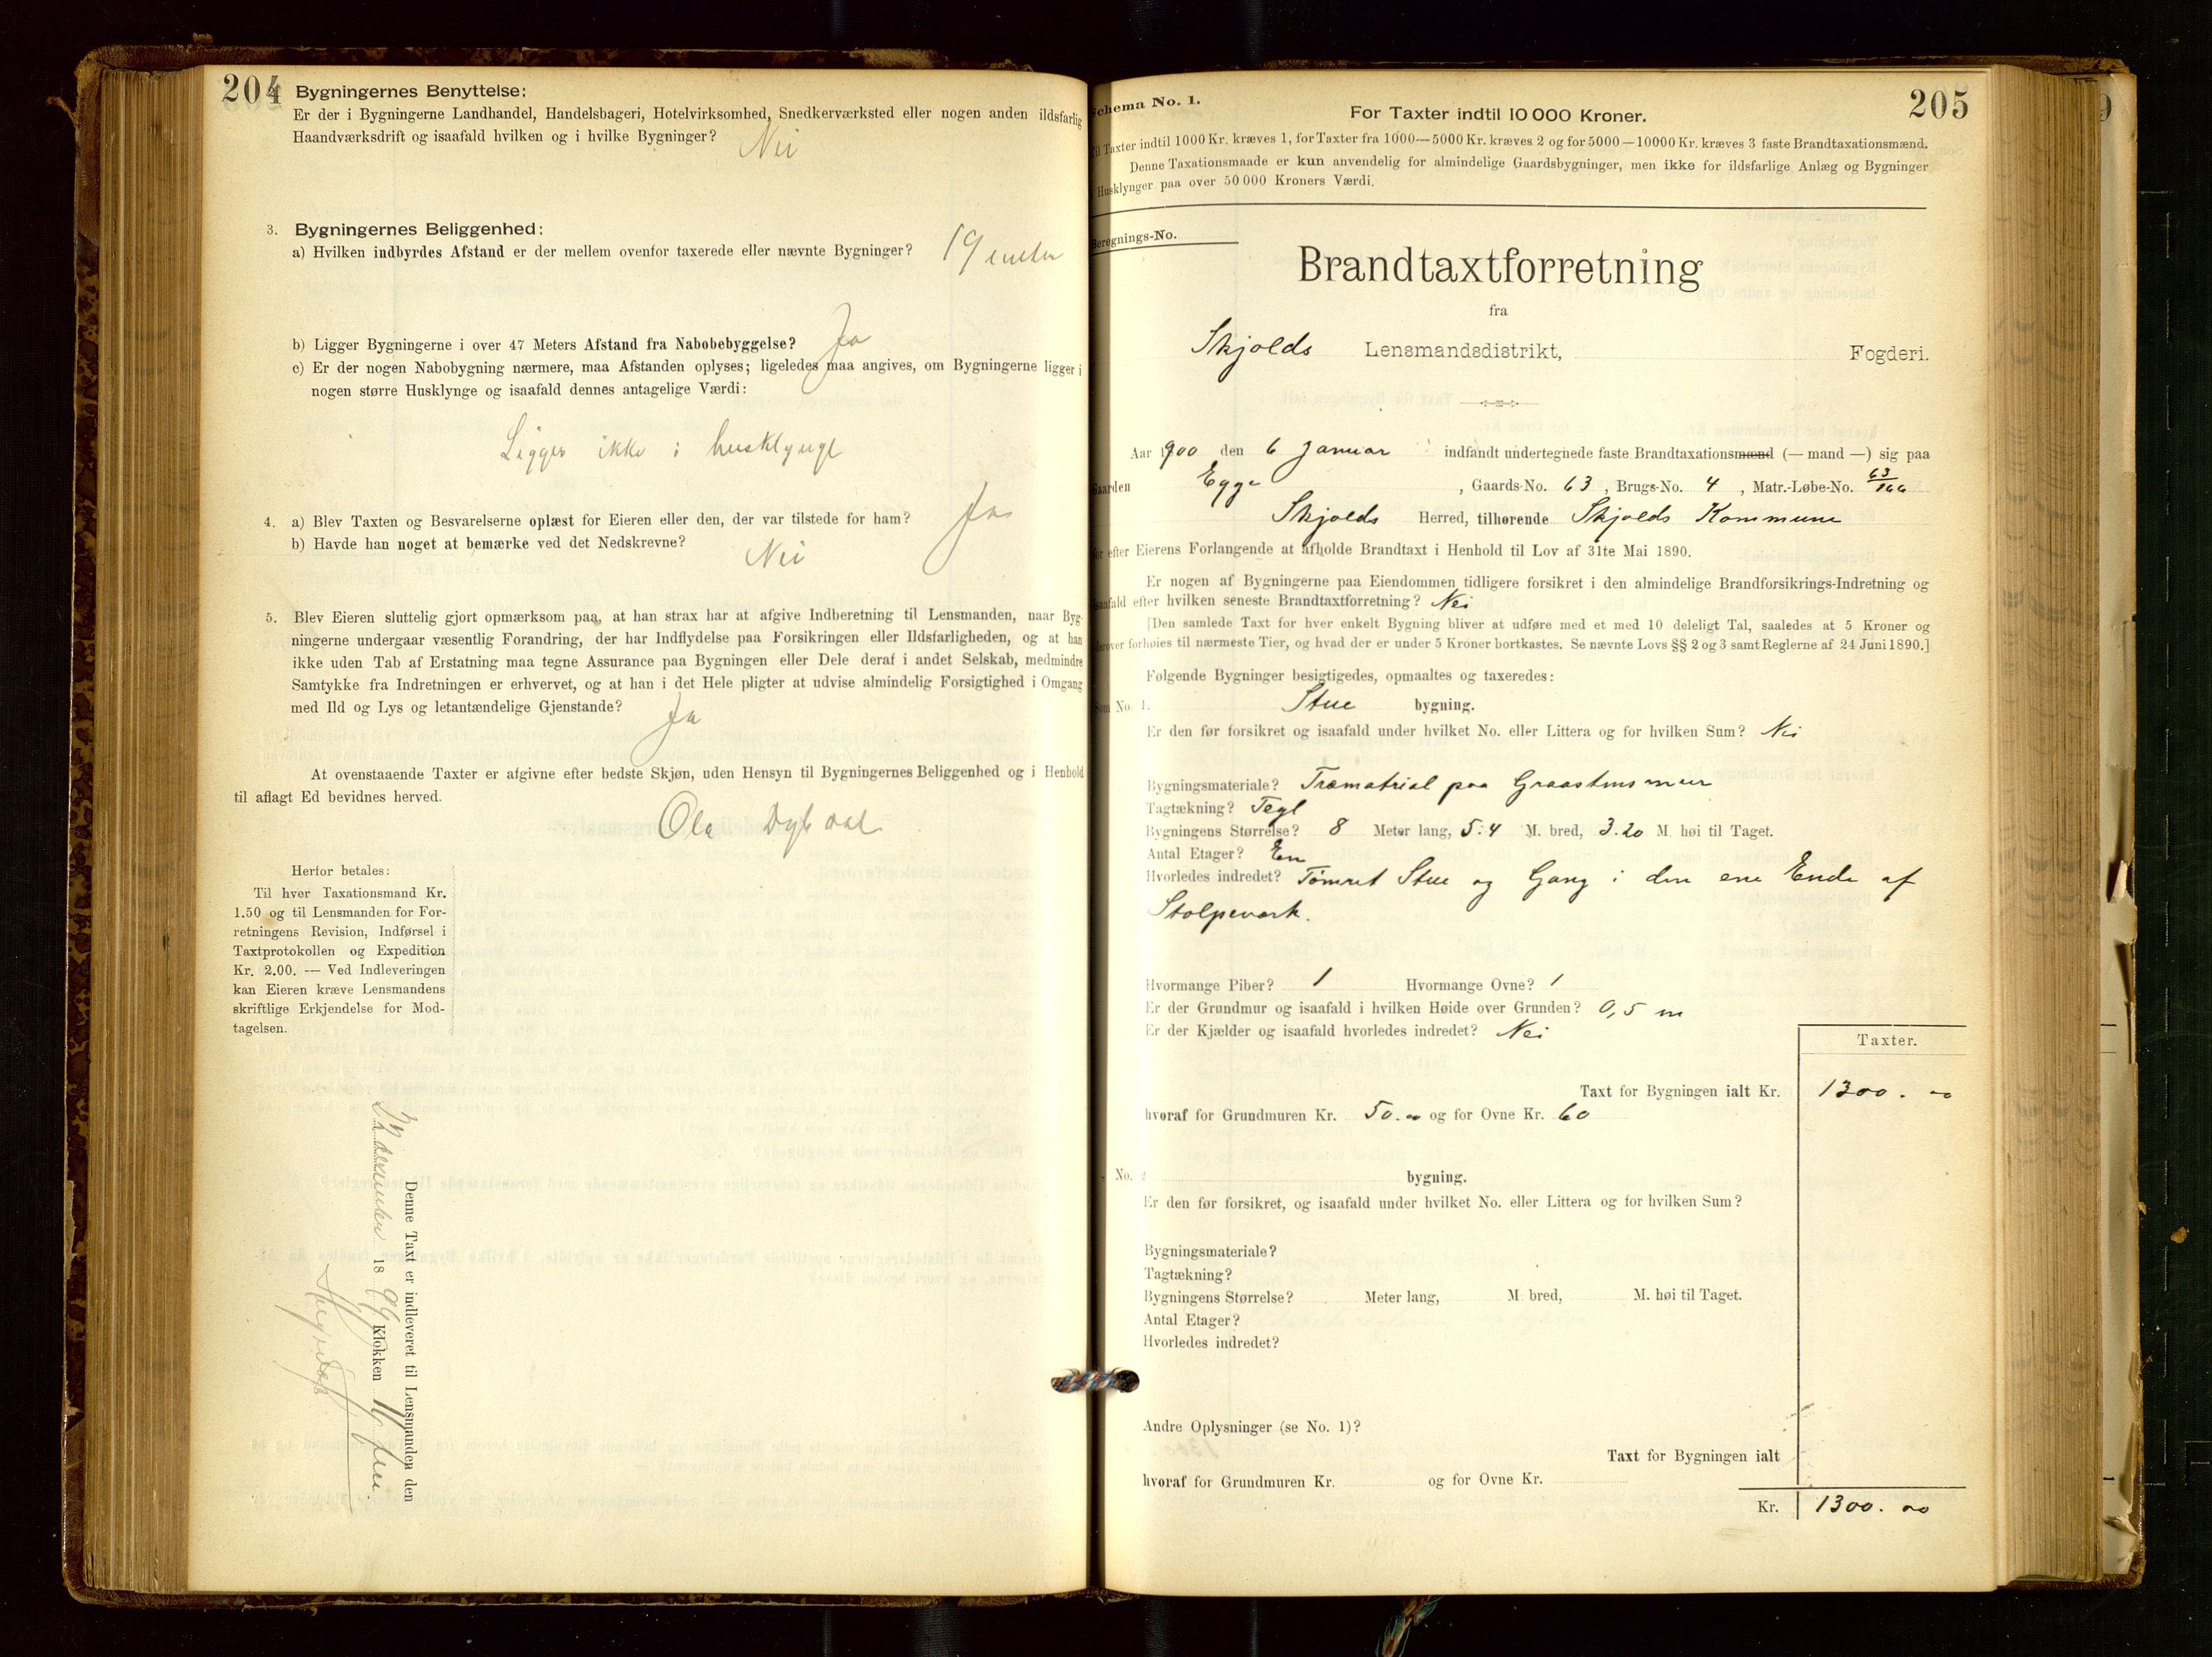 204
Bygningernes Benyttelse:
Er der i Bygningerne Landhandel, Handelsbageri, Hotelvirksomhed, Snedkerværksted eller nogen anden ildsfarlig
Haandværksdrift og isaafald hvilken og i hvilke Bygninger? Nei
3. Bygningernes Beliggenhed:
a) Hvilken indbyrdes Afstand er der mellem ovenfor taxerede eller nævnte Bygninger? 19 meter
b) Ligger Bygningerne i over 47 Meters Afstand fra Nabobebyggelse? Ja
c) Er der nogen Nabobygning nærmere, maa Afstanden oplyses; ligeledes maa angives, om Bygningerne ligger i
nogen større Husklynge og isaafald dennes antagelige Værdi:
Ligger ikke i husklynge
4. a) Blev Taxten og Besvarelserne oplæst for Eieren eller den, der var tilstede for ham? Ja
b) Havde han noget at bemærke ved det Nedskrevne? Nei
5. Blev Eieren sluttelig gjort opmærksom paa, at han strax har at afgive Indberetning til Lensmanden, naar Byg-
ningerne undergaar væsentlig Forandring, der har Indflydelse paa Forsikringen eller Ildsfarligheden, og at han
ikke uden Tab af Erstatning maa tegne Assurance paa Bygningen eller Dele deraf i andet Selskab, medmindre
Samtykke fra Indretningen er erhvervet, og at han i det Hele pligter at udvise almindelig Forsigtighed i Omgang
med Ild og Lys og letantændelige Gjenstande? Ja
At ovenstaaende Taxter er afgivne efter bedste Skjøn, uden Hensyn til Bygningernes Beliggenhed og i Henhold
til aflagt Ed bevidnes herved.
Ola
Herfor betales:
Til hver Taxationsmand Kr.
1.50 og til Lensmanden for For-
retningens Revision, Indførsel i
Taxtprotokollen og Expedition
Kr. 2.00. — Ved Indleveringen
kan Eieren kræve Lensmandens
skriftlige Erkjendelse for Mod-
tagelsen.
Denne Taxt er indleveret til Lensmanden den
december 1899 Klokken
205
Schema No. 1.
For Taxter indtil 10 000 Kroner.
Til Taxter indtil 1000 Kr. kræves 1, for Taxter fra 1000—5000 Kr. kræves 2 og for 5000—10000 Kr. kræves 3 faste Brandtaxationsmænd.
Denne Taxationsmaade er kun anvendelig for almindelige Gaardsbygninger, men ikke for ildsfarlige Anlæg og Bygninger
i Husklynger paa over 50 000 Kroners Værdi.
Beregnings-No.
Brandtaxtforretning
fra
Skjolds Lensmandsdistrikt, Fogderi.
Aar 1900 den 6 Januar indfandt undertegnede faste Brandtaxationsmænd (— mand —) sig paa
Gaarden Egge, Gaards-No. 63, Brugs-No. 4, Matr.-Løbe-No. 63/166
Skjolds Herred, tilhørende Skjolds Kommune
for efter Eierens Forlangende at afholde Brandtaxt i Henhold til Lov af 31te Mai 1890.
Er nogen af Bygningerne paa Eiendommen tidligere forsikret i den almindelige Brandforsikrings-Indretning og
isaafald efter hvilken seneste Brandtaxtforretning? Nei
[Den samlede Taxt for hver enkelt Bygning bliver at udføre med et med 10 deleligt Tal, saaledes at 5 Kroner og
derover forhøies til nærmeste Tier, og hvad der er under 5 Kroner bortkastes. Se nævnte Lovs §§ 2 og 3 samt Reglerne af 24 Juni 1890.]
Følgende Bygninger besigtigedes, opmaaltes og taxeredes:
Som No. 1. Stue bygning.
Er den før forsikret og isaafald under hvilket No. eller Littera og for hvilken Sum? Nei
Bygningsmateriale? Træmatrial paa Graastensmur
Tagtækning? Tegl
Bygningens Størrelse? 8 Meter lang, 5.4 M. bred, 3.20 M. høi til Taget.
Antal Etager? En
Hvorledes indredet? Tømret Stue og Gang i den ene Ende af
Stolpeverk.
Hvormange Piber? 1 Hvormange Ovne? 1
Er der Grundmur og isaafald i hvilken Høide over Grunden? 0,5 m
Er der Kjælder og isaafald hvorledes indredet? Nei
Taxter.
Taxt for Bygningen ialt Kr. 1300. 00
hvoraf for Grundmuren Kr. 50.00 og for Ovne Kr. 60
No. 2 bygning.
Er den før forsikret, og isaafald under hvilket No. eller Littera og for hvilken Sum?
Bygningsmateriale?
Tagtækning?
Bygningens Størrelse? Meter lang, M. bred, M. høi til Taget.
Antal Etager?
Hvorledes indredet?
Andre Oplysninger (se No. 1)?
Taxt for Bygningen ialt
hvoraf for Grundmuren Kr. og for Ovne Kr.
Kr. 1300. 00